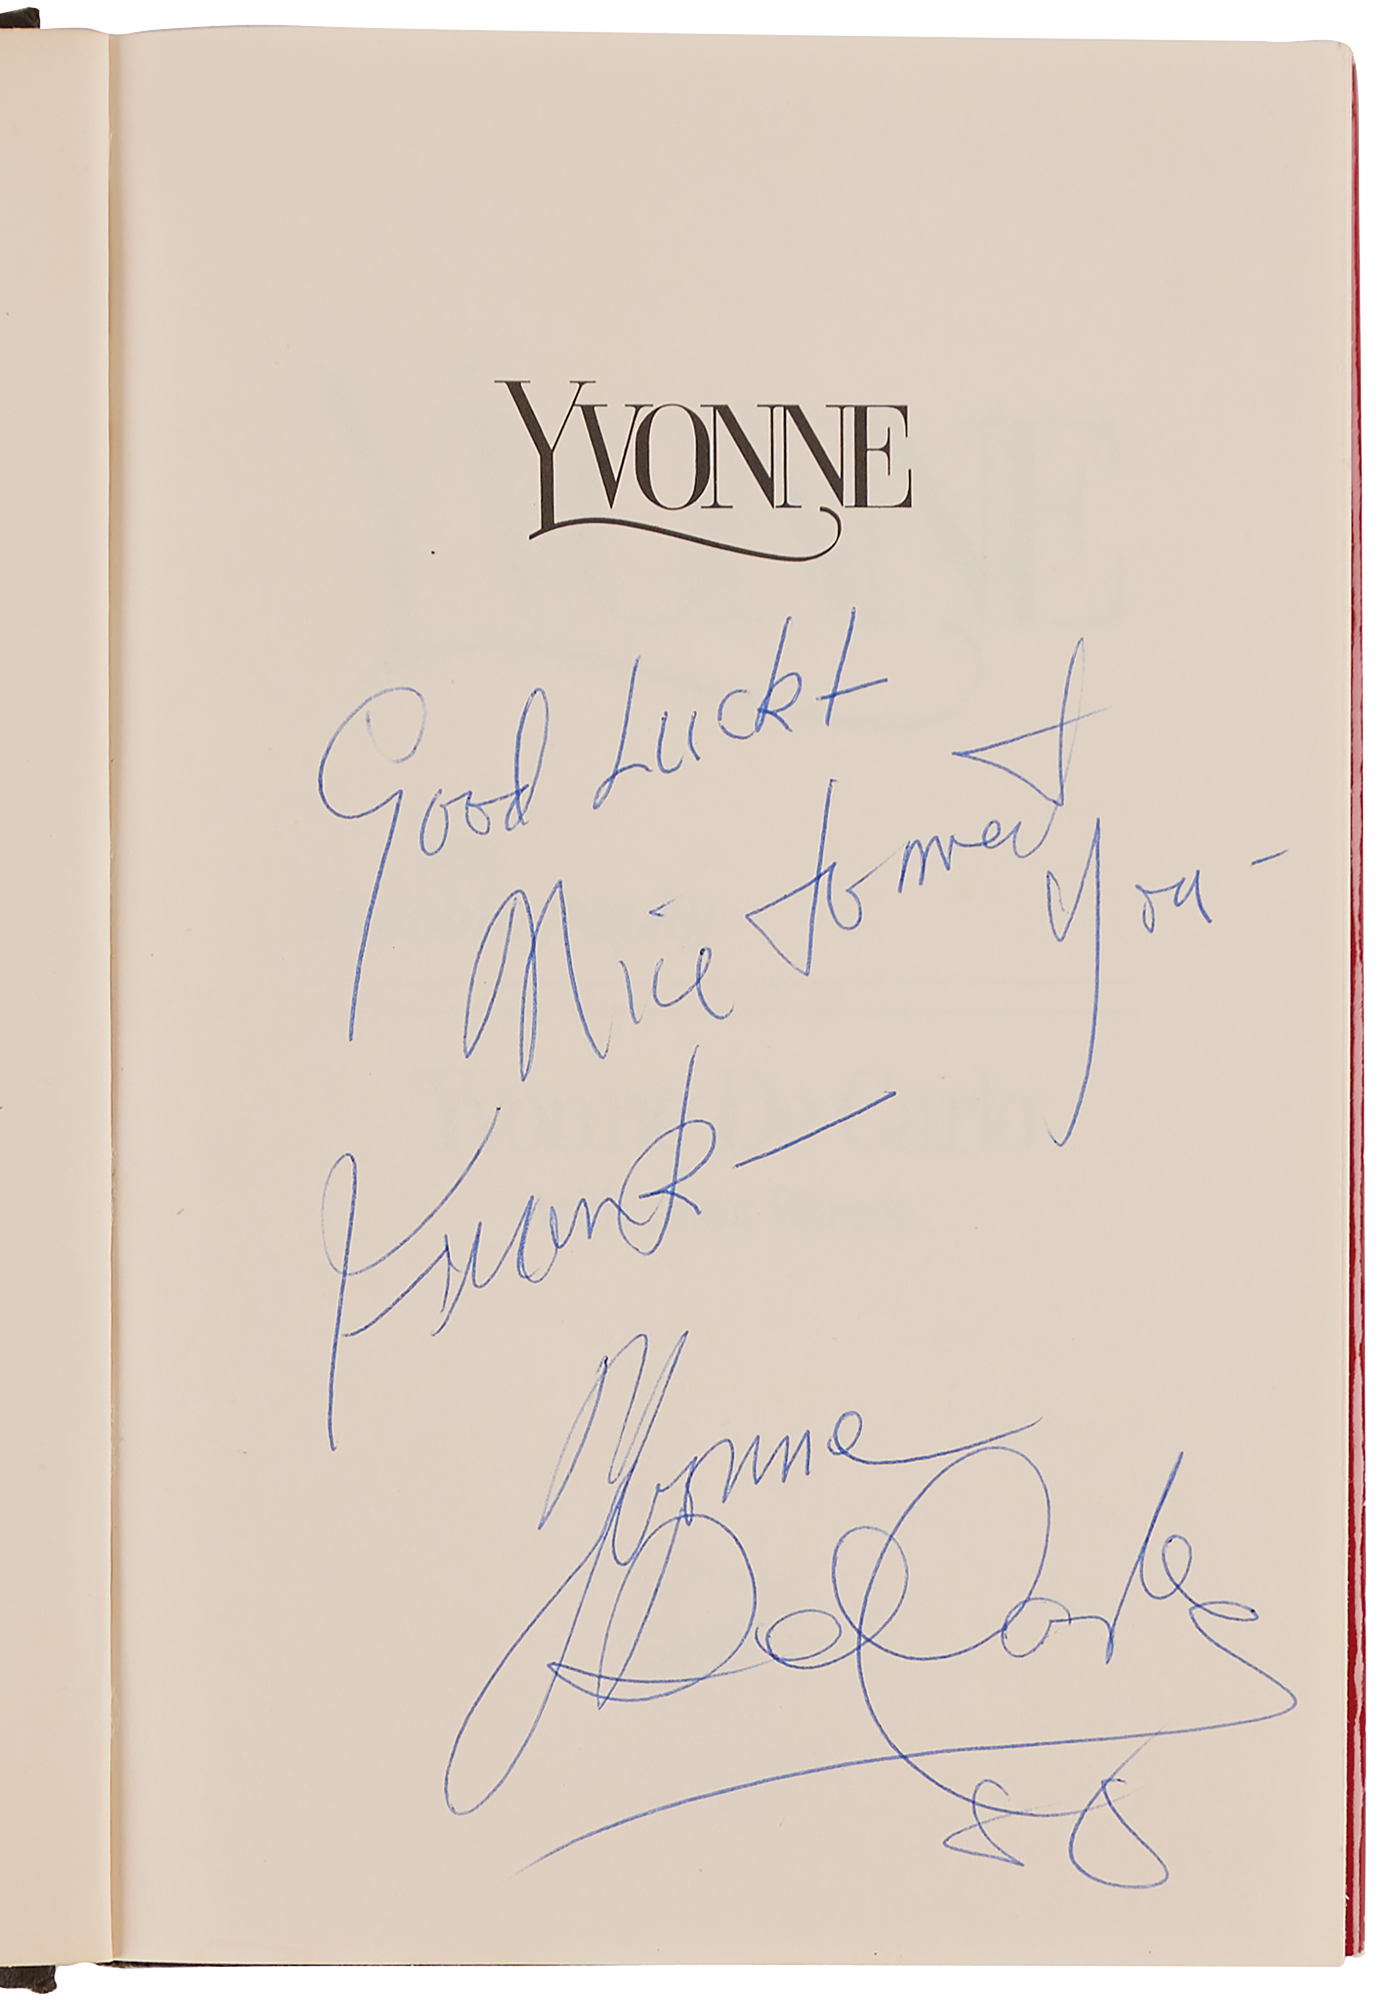 YVONNE
Good Luck +
Nice to meet
you -
Frank -
Yvonne
De Carlo
88